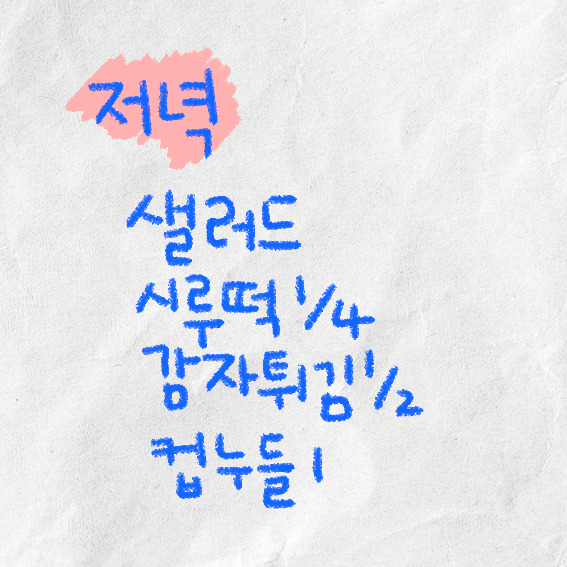 저녁
샐러드
시루떡 1/4
감자튀김 1/2
컵누들 1